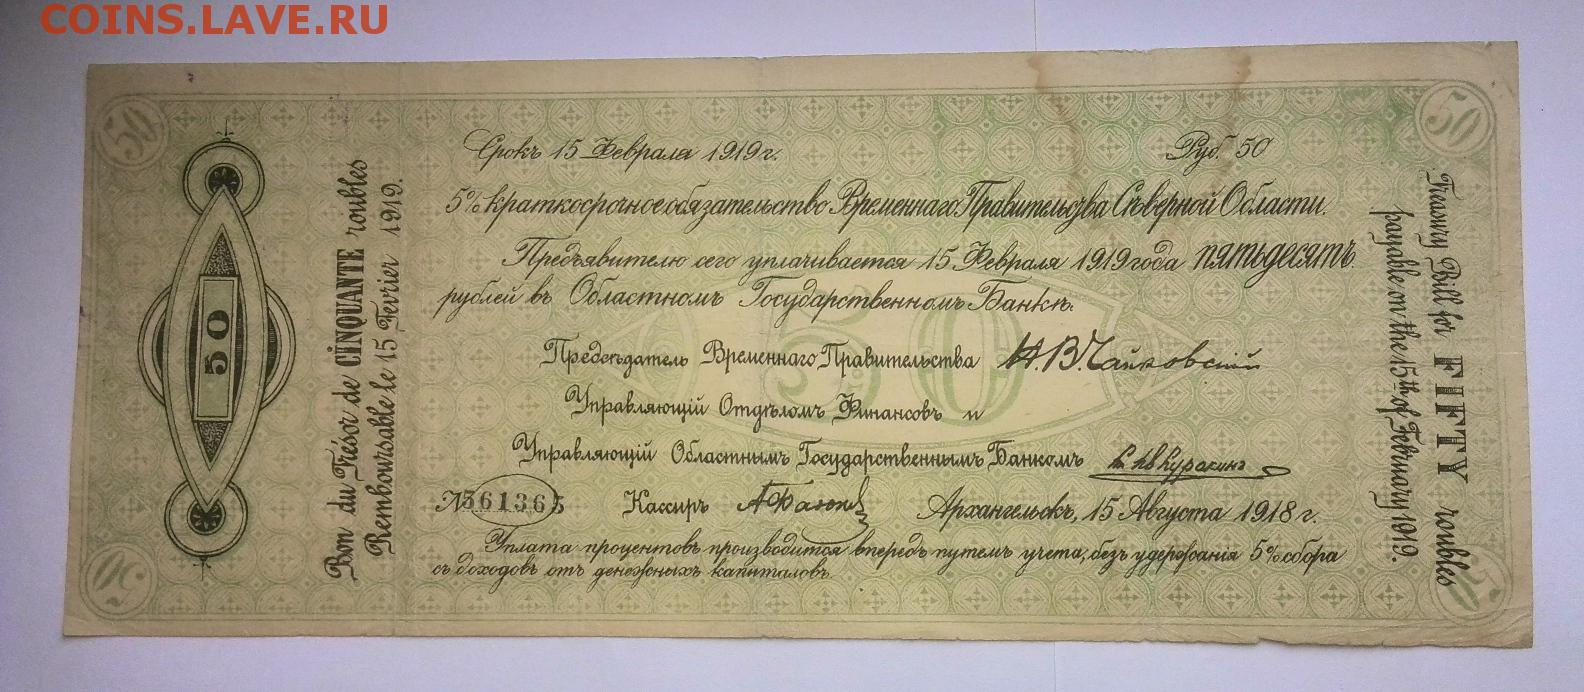 COINS.LAVE.RU
50
50
Срокъ 15 Февраля 1919 г.
Руб. 50
5% краткосрочное обязательство Временнаго Правительства Сѣверной Области.
Предъявителю сего уплачивается 15 Февраля 1919 года пятьдесятъ
рублей въ Областномъ Государственномъ Банкѣ.
50
Предсѣдатель Временнаго Правительства Н. В. Чайковскій
Управляющій Отдѣломъ Финансовъ и
Управляющій Областнымъ Государственнымъ Банкомъ Куракинъ
№ 361365 Кассиръ
Архангельскъ, 15 Августа 1918 г.
Уплата процентовъ производится впередъ путемъ учета, безъ удержания 5% сбора
съ доходовъ отъ денежныхъ капиталовъ.
50
Bon du Trésor de CINQUANTE roubles
Remboursable le 15 Fevrier 1919.
Treasury Bill for FIFTY roubles
payable on the 15th of February 1919.
50
50